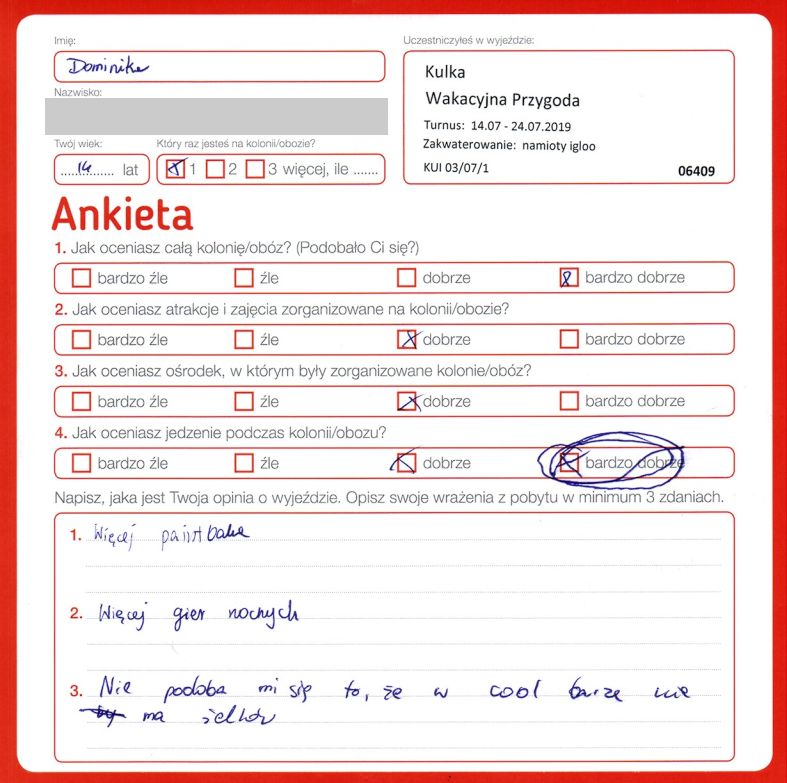 Imię:
Dominika
Nazwisko:
Twój wiek:
14 lat
Który raz jesteś na kolonii/obozie?
1 2 3 więcej, ile .......
Uczestniczyłeś w wyjeździe:
Kulka
Wakacyjna Przygoda
Turnus: 14.07 - 24.07.2019
Zakwaterowanie: namioty igloo
KUI 03/07/1 06409
Ankieta
1. Jak oceniasz całą kolonię/obóz? (Podobało Ci się?)
bardzo źle źle dobrze bardzo dobrze
2. Jak oceniasz atrakcje i zajęcia zorganizowane na kolonii/obozie?
bardzo źle źle dobrze bardzo dobrze
3. Jak oceniasz ośrodek, w którym były zorganizowane kolonie/obóz?
bardzo źle źle dobrze bardzo dobrze
4. Jak oceniasz jedzenie podczas kolonii/obozu?
bardzo źle źle dobrze bardzo dobrze
Napisz, jaka jest Twoja opinia o wyjeździe. Opisz swoje wrażenia z pobytu w minimum 3 zdaniach.
1. Więcej
2. Więcej gier nocnych
3. Nie podoba mi się to, że w cool barze nie
ma żelków